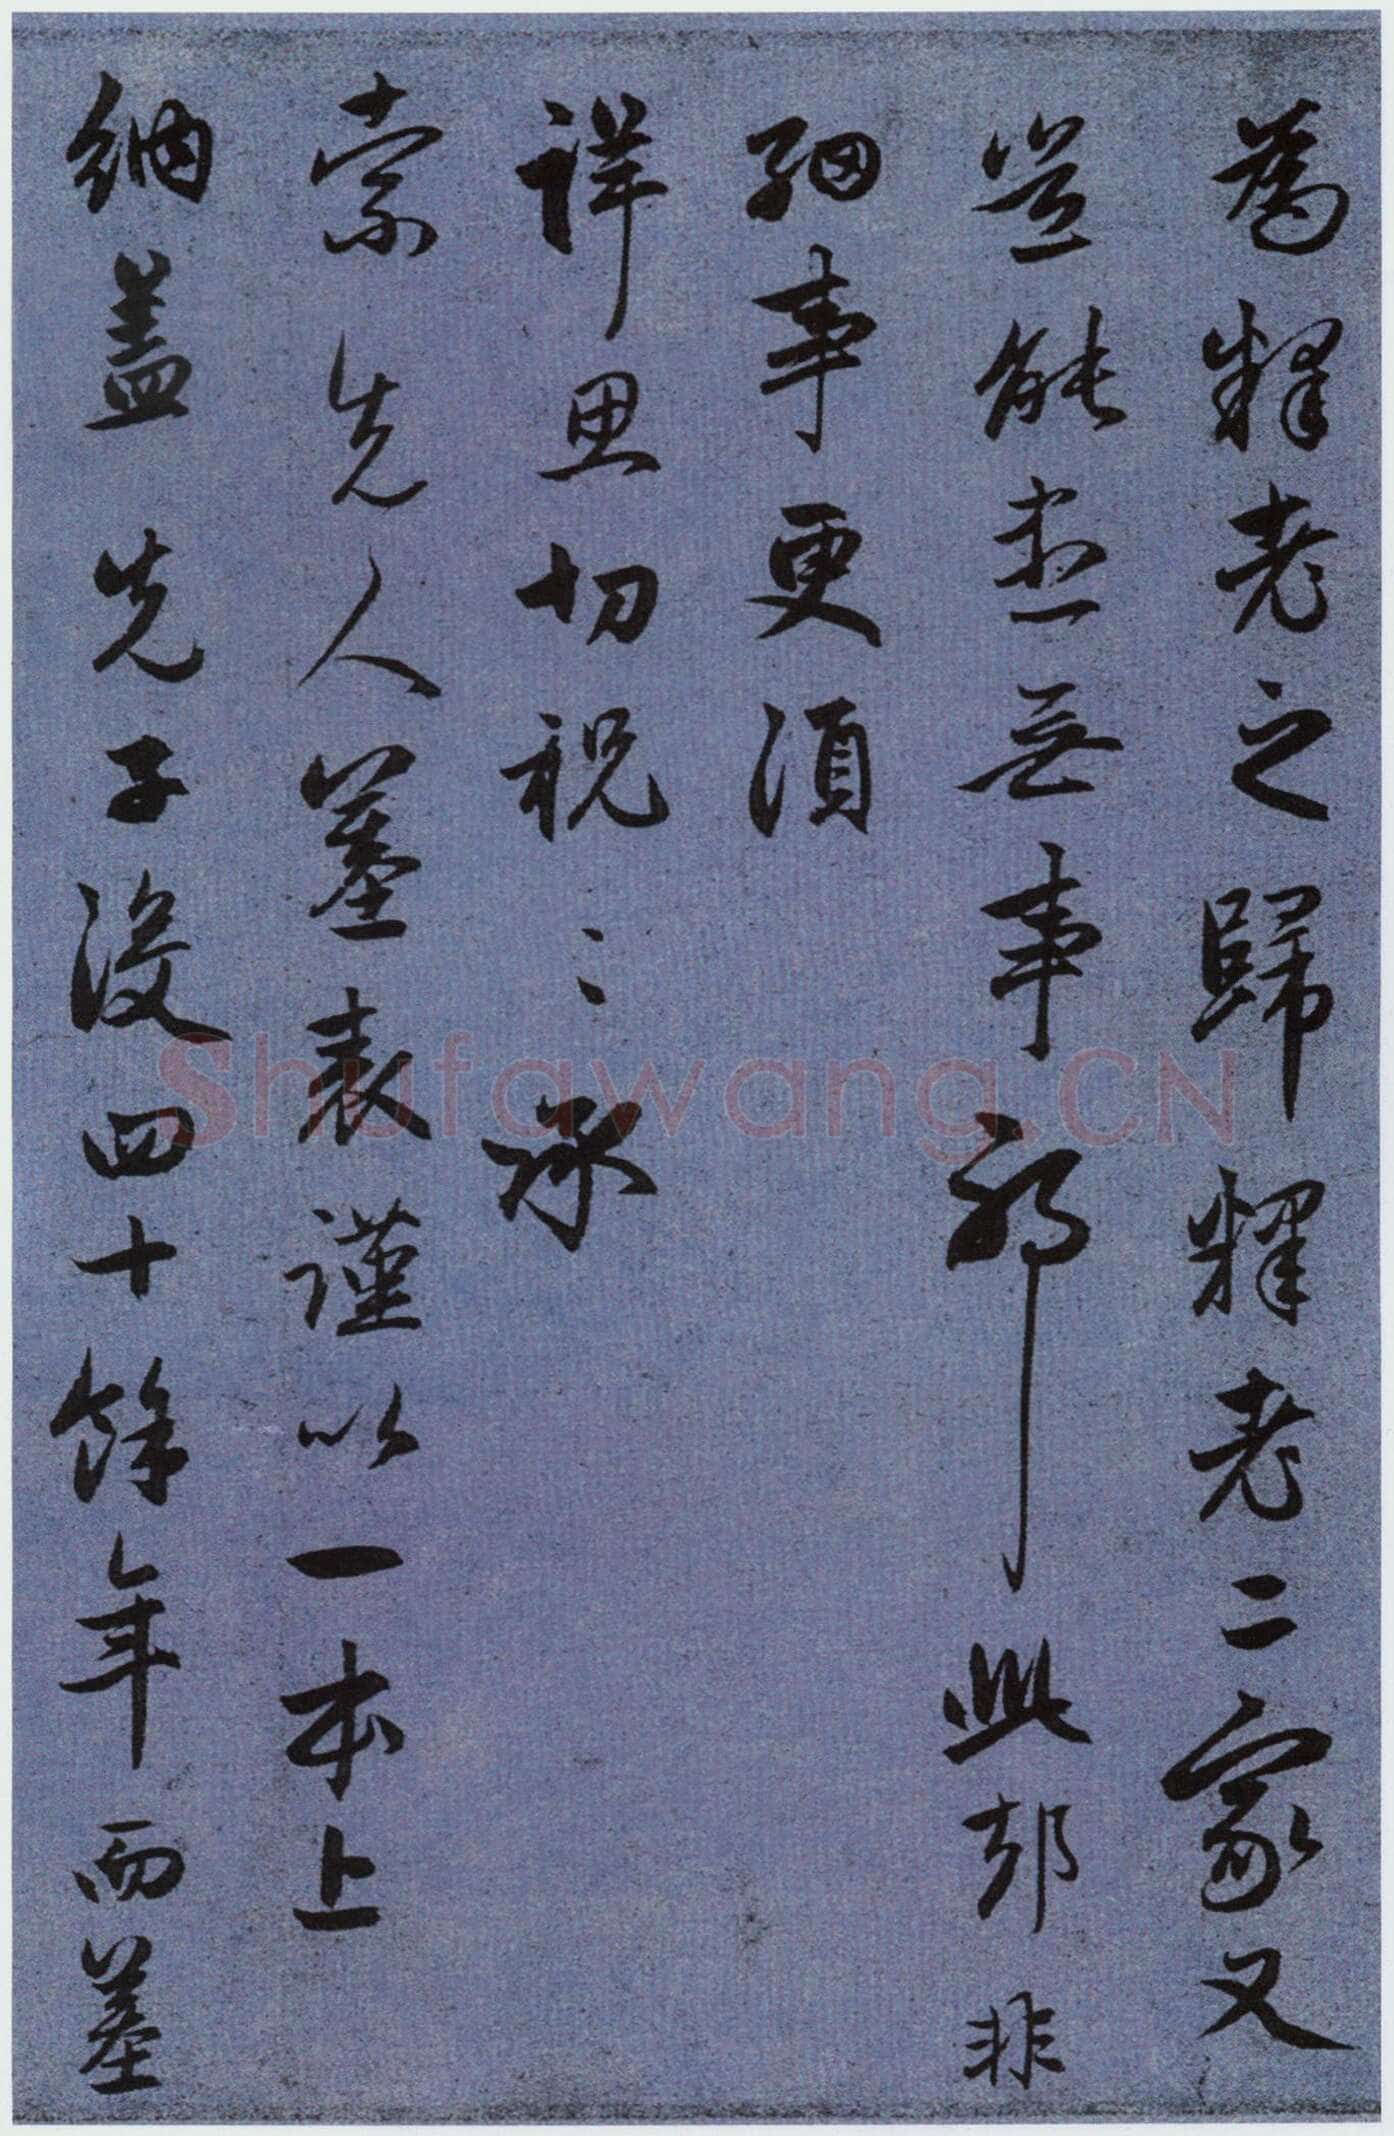 為釋老之歸釋老二家又
豈能盡無事邪此却非
細事更須
詳思切祝〻承
索先人墓表謹以一本上
納蓋先子没四十餘年而墓
Shufawang.CN